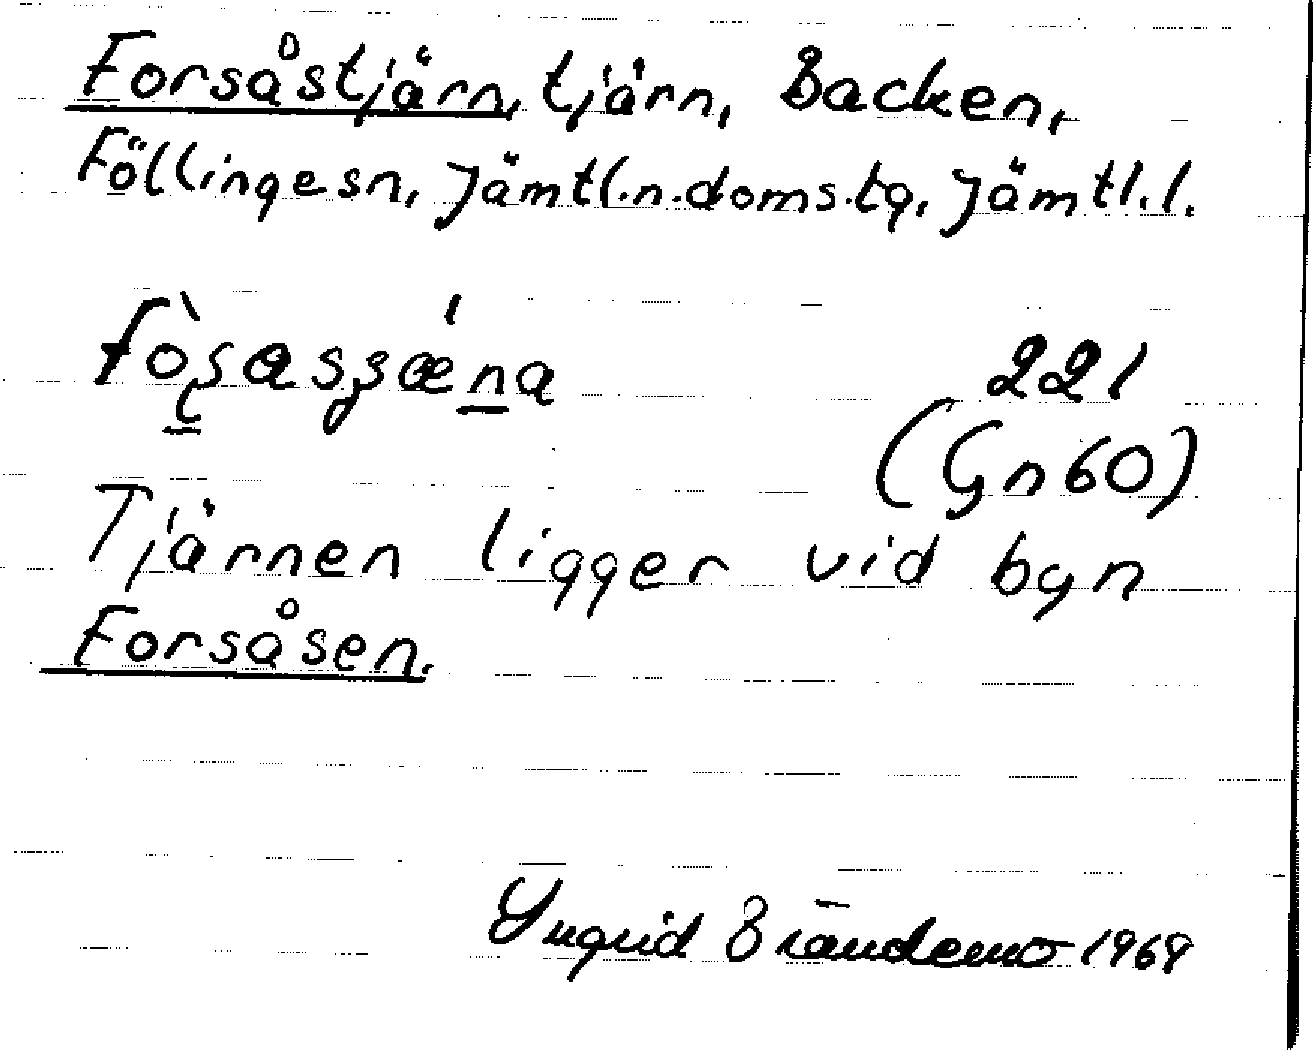 Forsåstjärn, tjärn, Backen,
Föllingesn, Jämtl.n.doms.tg, Jämtl.l.
221
(Gn60)
Tjärnen ligger vid byn
Forsåsen.
Yngrid Brändemo 1969